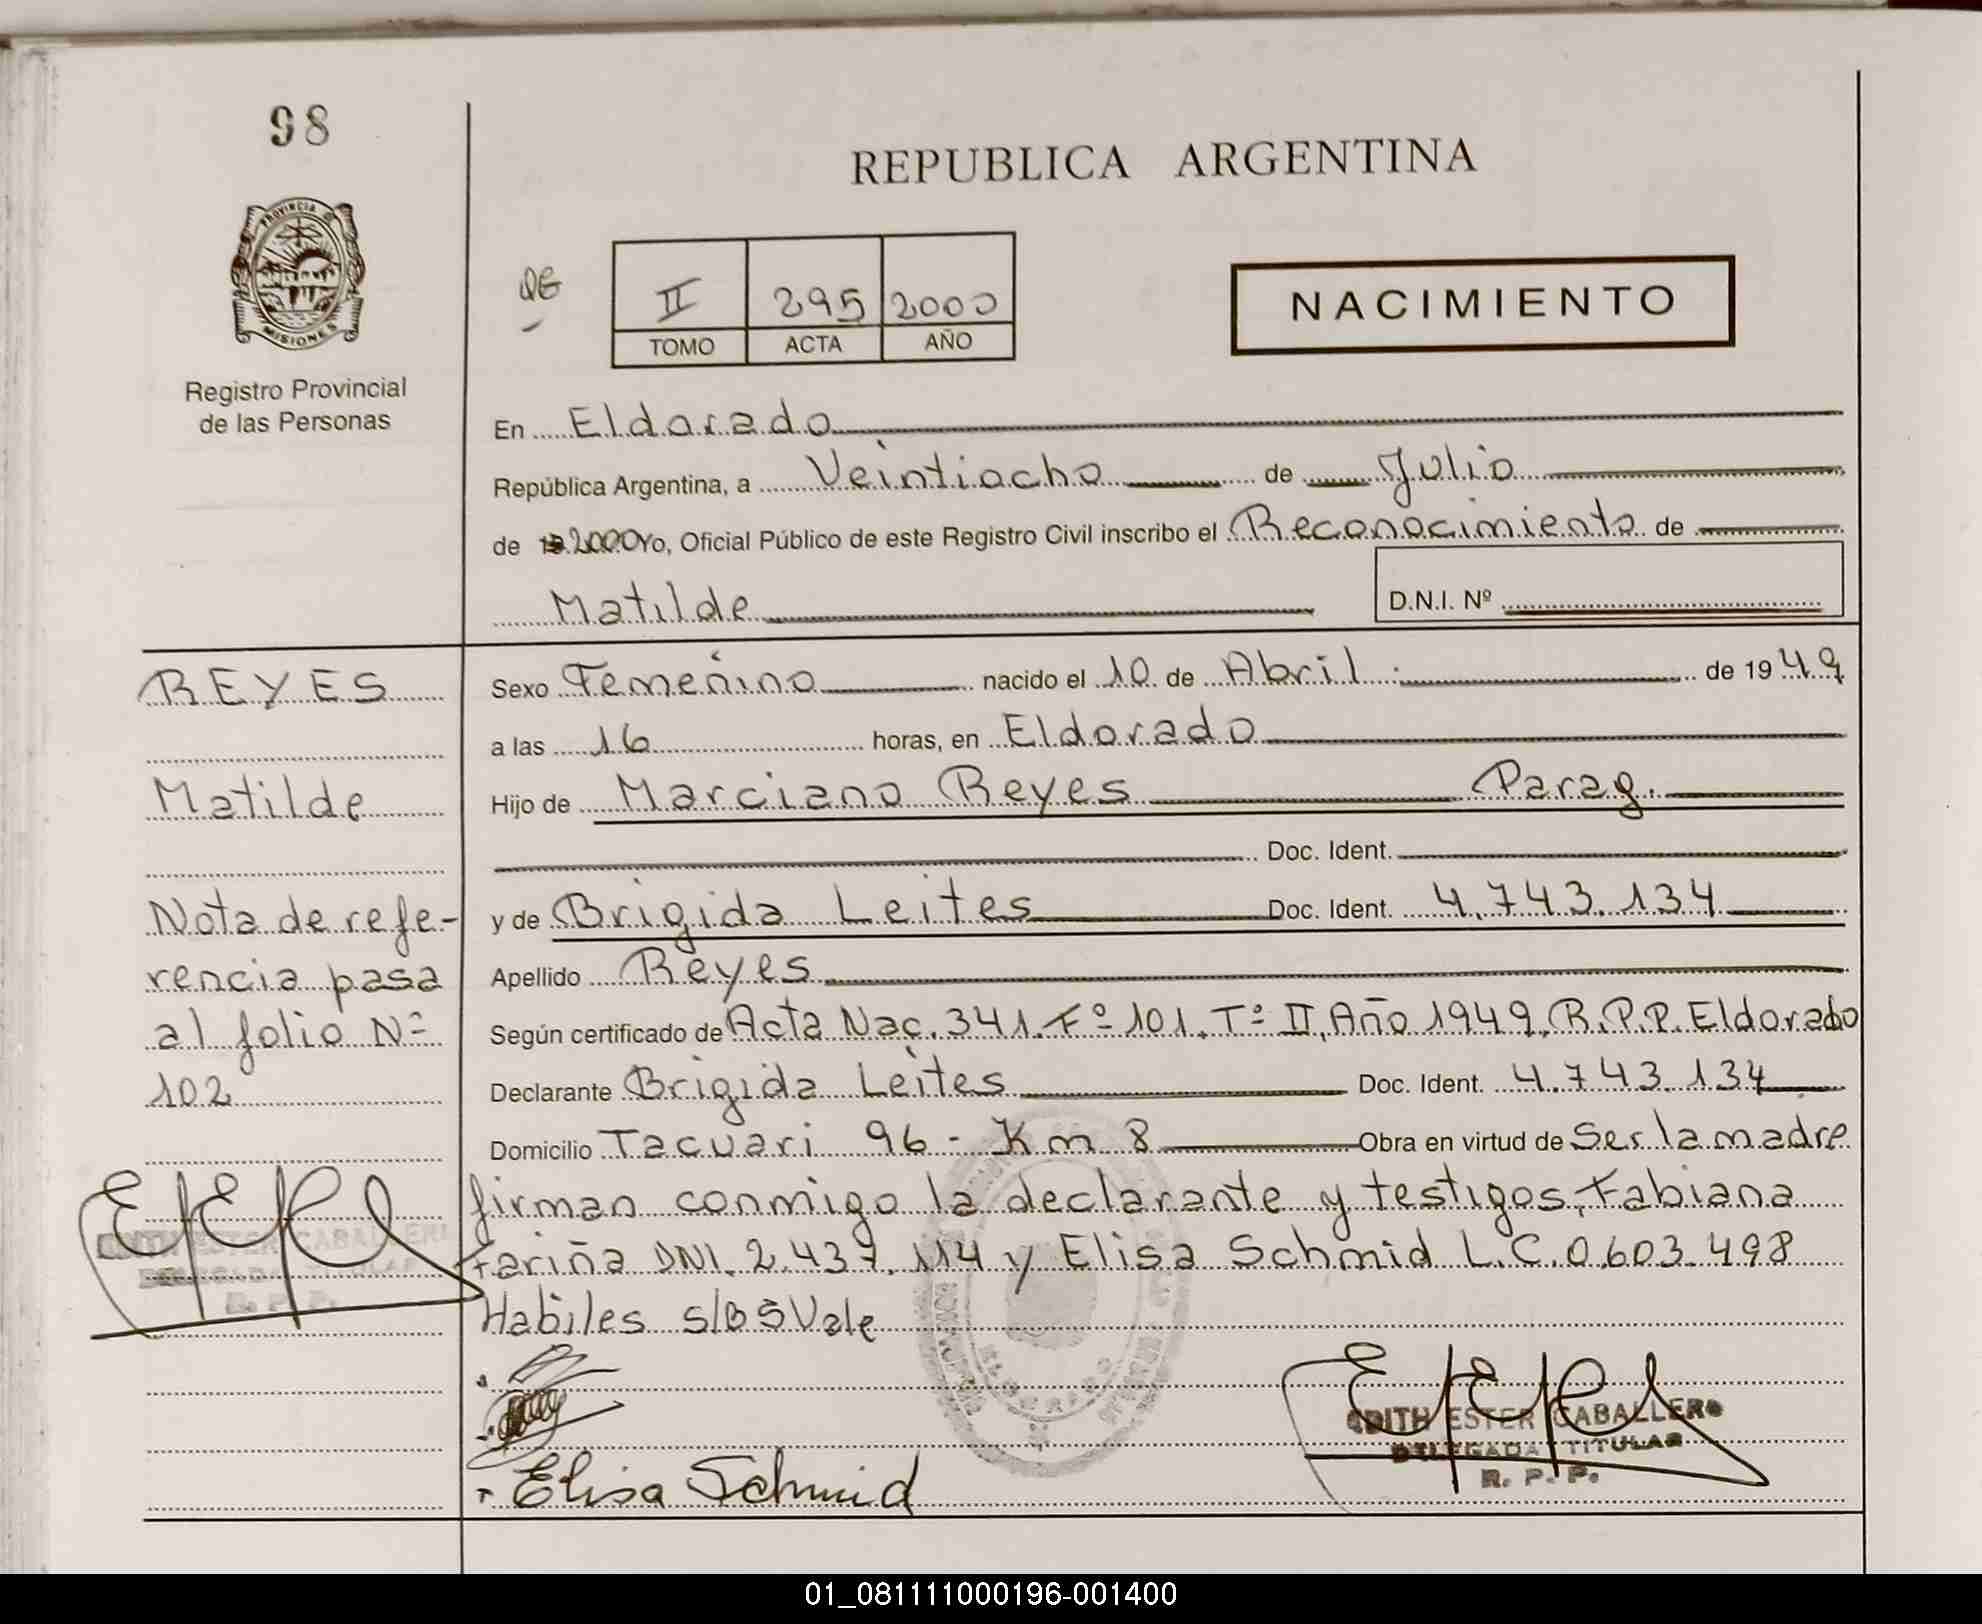 98
REPUBLICA ARGENTINA
PROVINCIA DE
MISIONES
II 295 2000
TOMO ACTA AÑO
NACIMIENTO
Registro Provincial
de las Personas
En Eldorado
República Argentina, a Veintiocho de Julio
de 2000 Yo, Oficial Público de este Registro Civil inscribo el Reconocimiento de
Matilde D.N.I. Nº
REYES
Matilde
Nota de refe-
rencia pasa
al folio Nº
102
EDITH ESTER CABALLERO
DELEGADA TITULAR
R. P. P.
Sexo Femenino nacido el 10 de Abril de 1949
a las 16 horas, en Eldorado
Hijo de Marciano Reyes Parag.
Doc. Ident.
y de Brigida Leites Doc. Ident. 4.743.134
Apellido Reyes
Según certificado de Acta Nac. 341. Fº 101. Tº II, Año 1949, R.P.P. Eldorado
Declarante Brigida Leites Doc. Ident. 4.743.134
Domicilio Tacuari 96 - Km 8 Obra en virtud de Ser la madre
firman conmigo la declarante y testigos, Fabiana
Fariña DNI. 2.437.114 y Elisa Schmid L.C. 0.603.498
Habiles s/B S Vale
Elisa Schmid
EDITH ESTER CABALLERO
DELEGADA TITULAR
R. P. P.
01_081111000196-001400